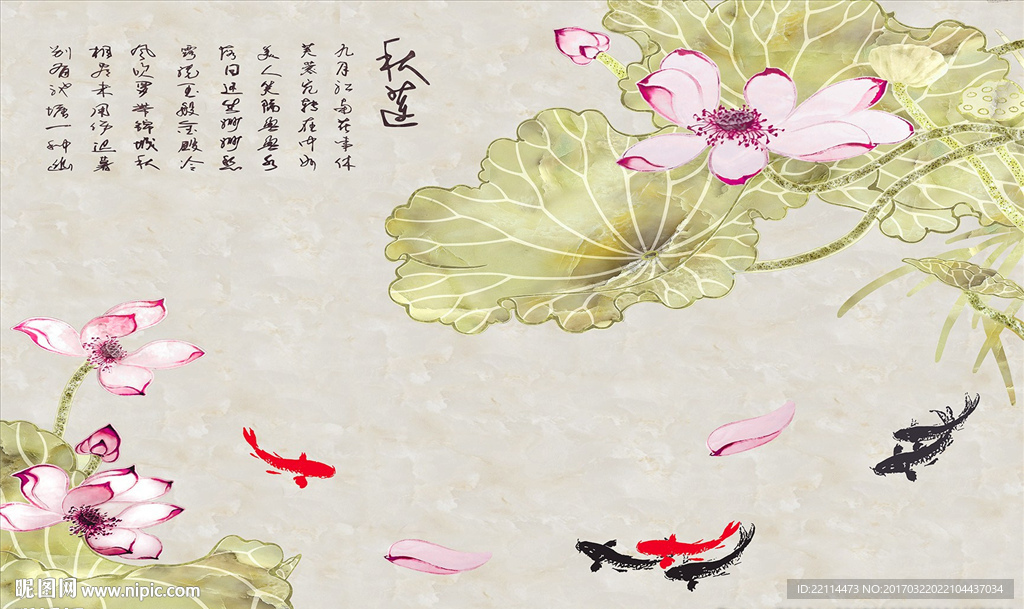 秋蓮
九月江南花事休
芙蓉宛轉在中洲
美人笑隔盈盈水
落日還生渺渺愁
露洗玉盤金殿冷
風吹羅帶錦城秋
相看未用傷遲暮
別有池塘一種幽
昵图网 www.nipic.com
ID:22114473 NO:20170322022104437034